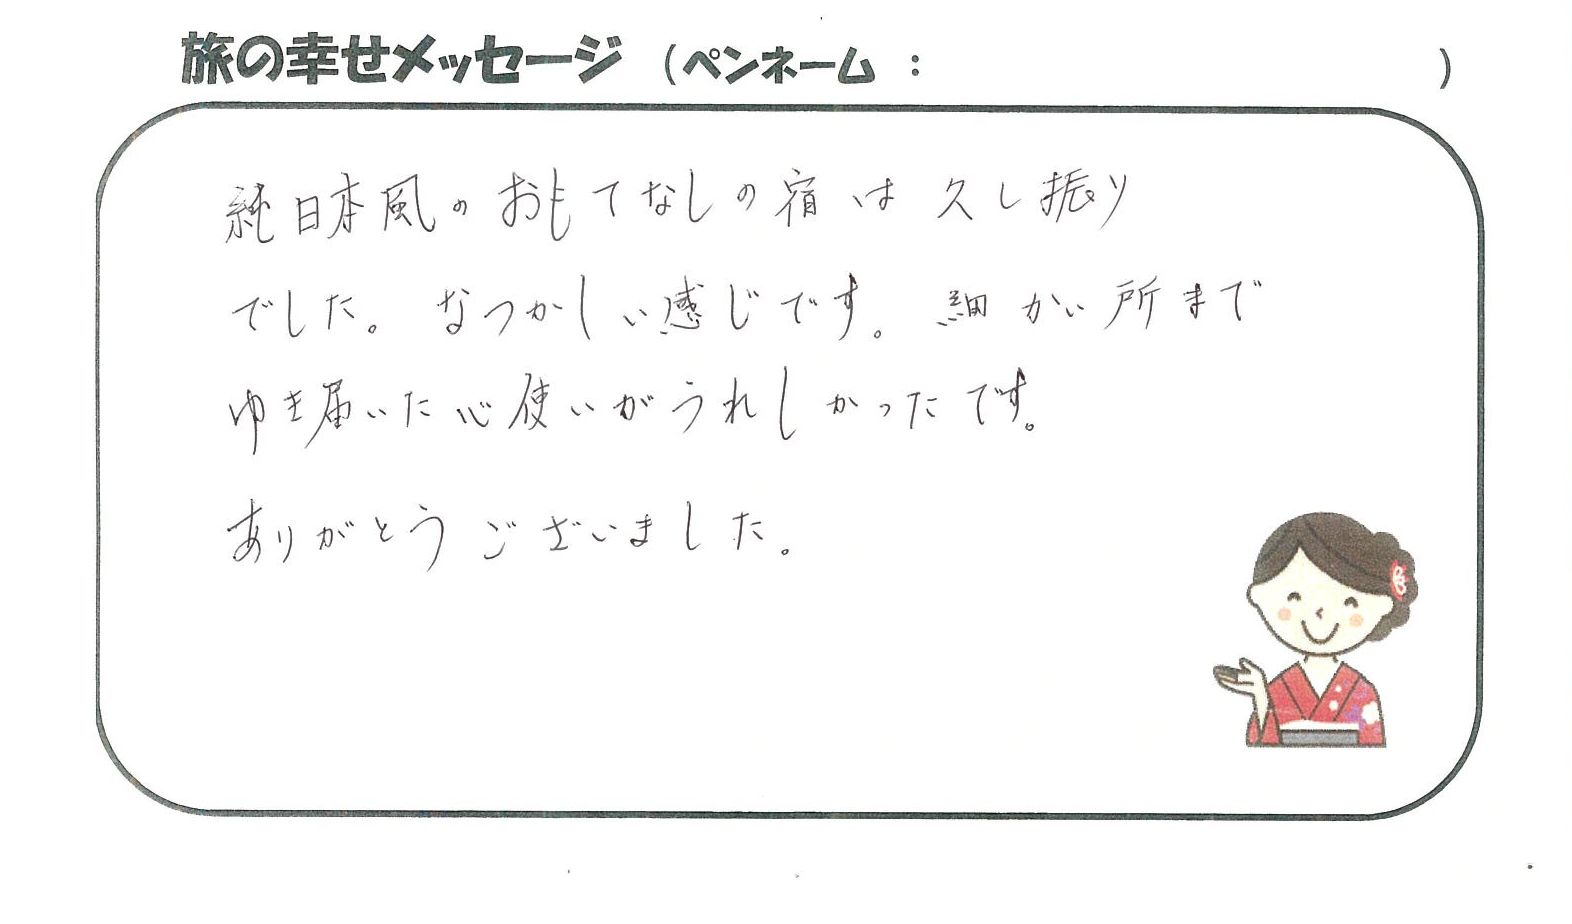 旅の幸せメッセージ （ペンネーム ： ）
純日本風のおもてなしの宿は久し振り
でした。なつかしい感じです。細かい所まで
ゆき届いた心使いがうれしかったです。
ありがとうございました。